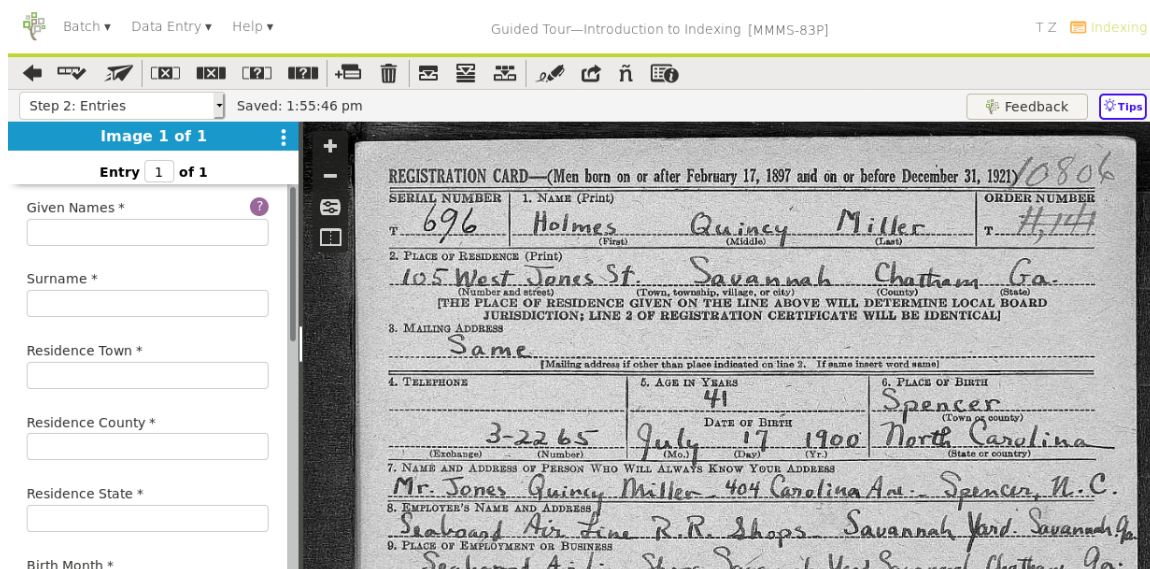 Batch ▾ Data Entry ▾ Help ▾ Guided Tour—Introduction to Indexing [MMMS-83P] T Z Indexing
Step 2: Entries Saved: 1:55:46 pm Feedback Tips
Image 1 of 1
Entry 1 of 1
Given Names * ?
Surname *
Residence Town *
Residence County *
Residence State *
Birth Month *
10806
REGISTRATION CARD—(Men born on or after February 17, 1897 and on or before December 31, 1921)
SERIAL NUMBER 1. NAME (Print) ORDER NUMBER
T 696 Holmes Quincy Miller T
(First) (Middle) (Last)
2. PLACE OF RESIDENCE (Print)
105 West Jones St. Savannah Chatham Ga.
(Number and street) (Town, township, village, or city) (County) (State)
[THE PLACE OF RESIDENCE GIVEN ON THE LINE ABOVE WILL DETERMINE LOCAL BOARD
JURISDICTION; LINE 2 OF REGISTRATION CERTIFICATE WILL BE IDENTICAL]
3. MAILING ADDRESS
Same
[Mailing address if other than place indicated on line 2. If same insert word same]
4. TELEPHONE 5. AGE IN YEARS 6. PLACE OF BIRTH
41 Spencer
DATE OF BIRTH (Town or county)
3-2265 July 17 1900 North Carolina
(Exchange) (Number) (Mo.) (Day) (Yr.) (State or country)
7. NAME AND ADDRESS OF PERSON WHO WILL ALWAYS KNOW YOUR ADDRESS
Mr. Jones Quincy Miller - 404 Carolina Ave. - Spencer, N.C.
8. EMPLOYER'S NAME AND ADDRESS
Seaboard Air Line R.R. Shops - Savannah Yard. Savannah, Ga
9. PLACE OF EMPLOYMENT OR BUSINESS